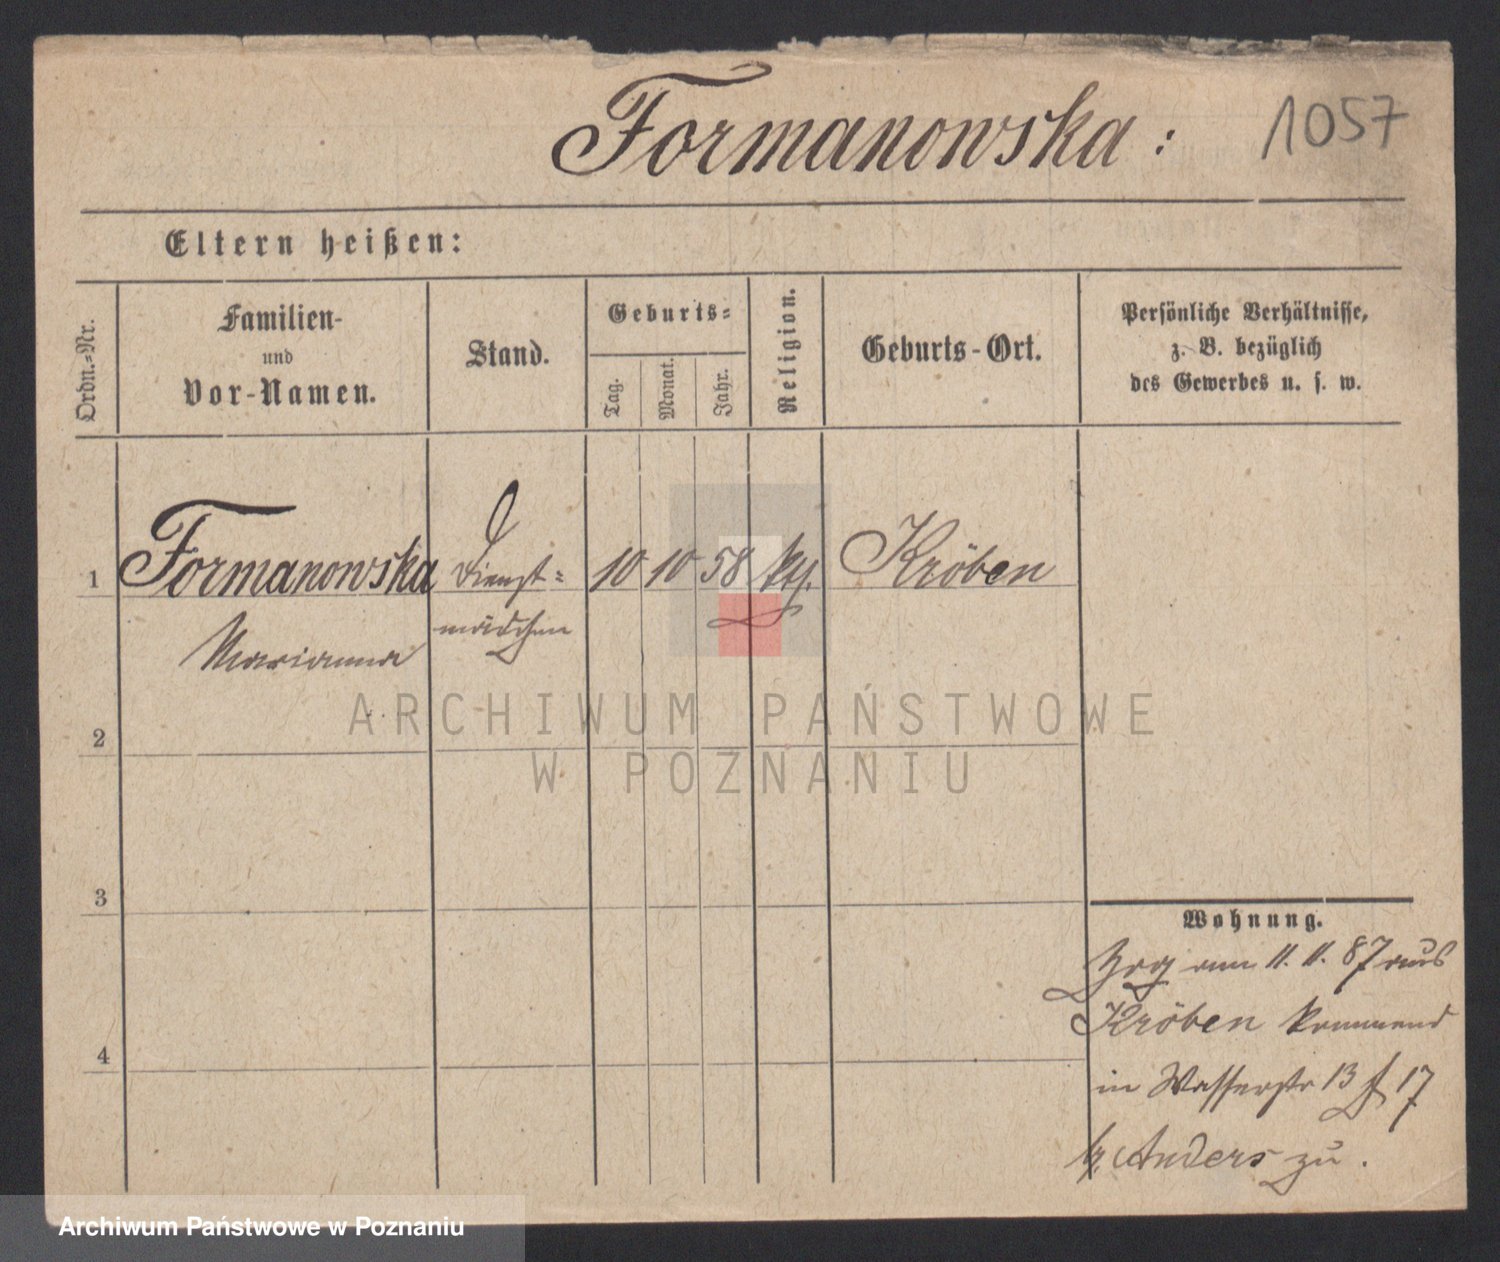 Formanowska :
1057
Eltern heißen:
Ordn.-Nr.
Familien-
und
Vor-Namen.
Stand.
Geburts-
Tag.
Monat.
Jahr.
Religion.
Geburts-Ort.
Persönliche Verhältnisse,
z. B. bezüglich
des Gewerbes u. s. w.
1
Formanowska
Marianna
Dienst-
mädchen
10 10 58
Kröben
ARCHIWUM PAŃSTWOWE
W POZNANIU
2
3
4
Wohnung.
Zog am 11. 11. 87 aus
Kröben kommend
in Wasserstr 13 17
Anders zu.
Archiwum Państwowe w Poznaniu